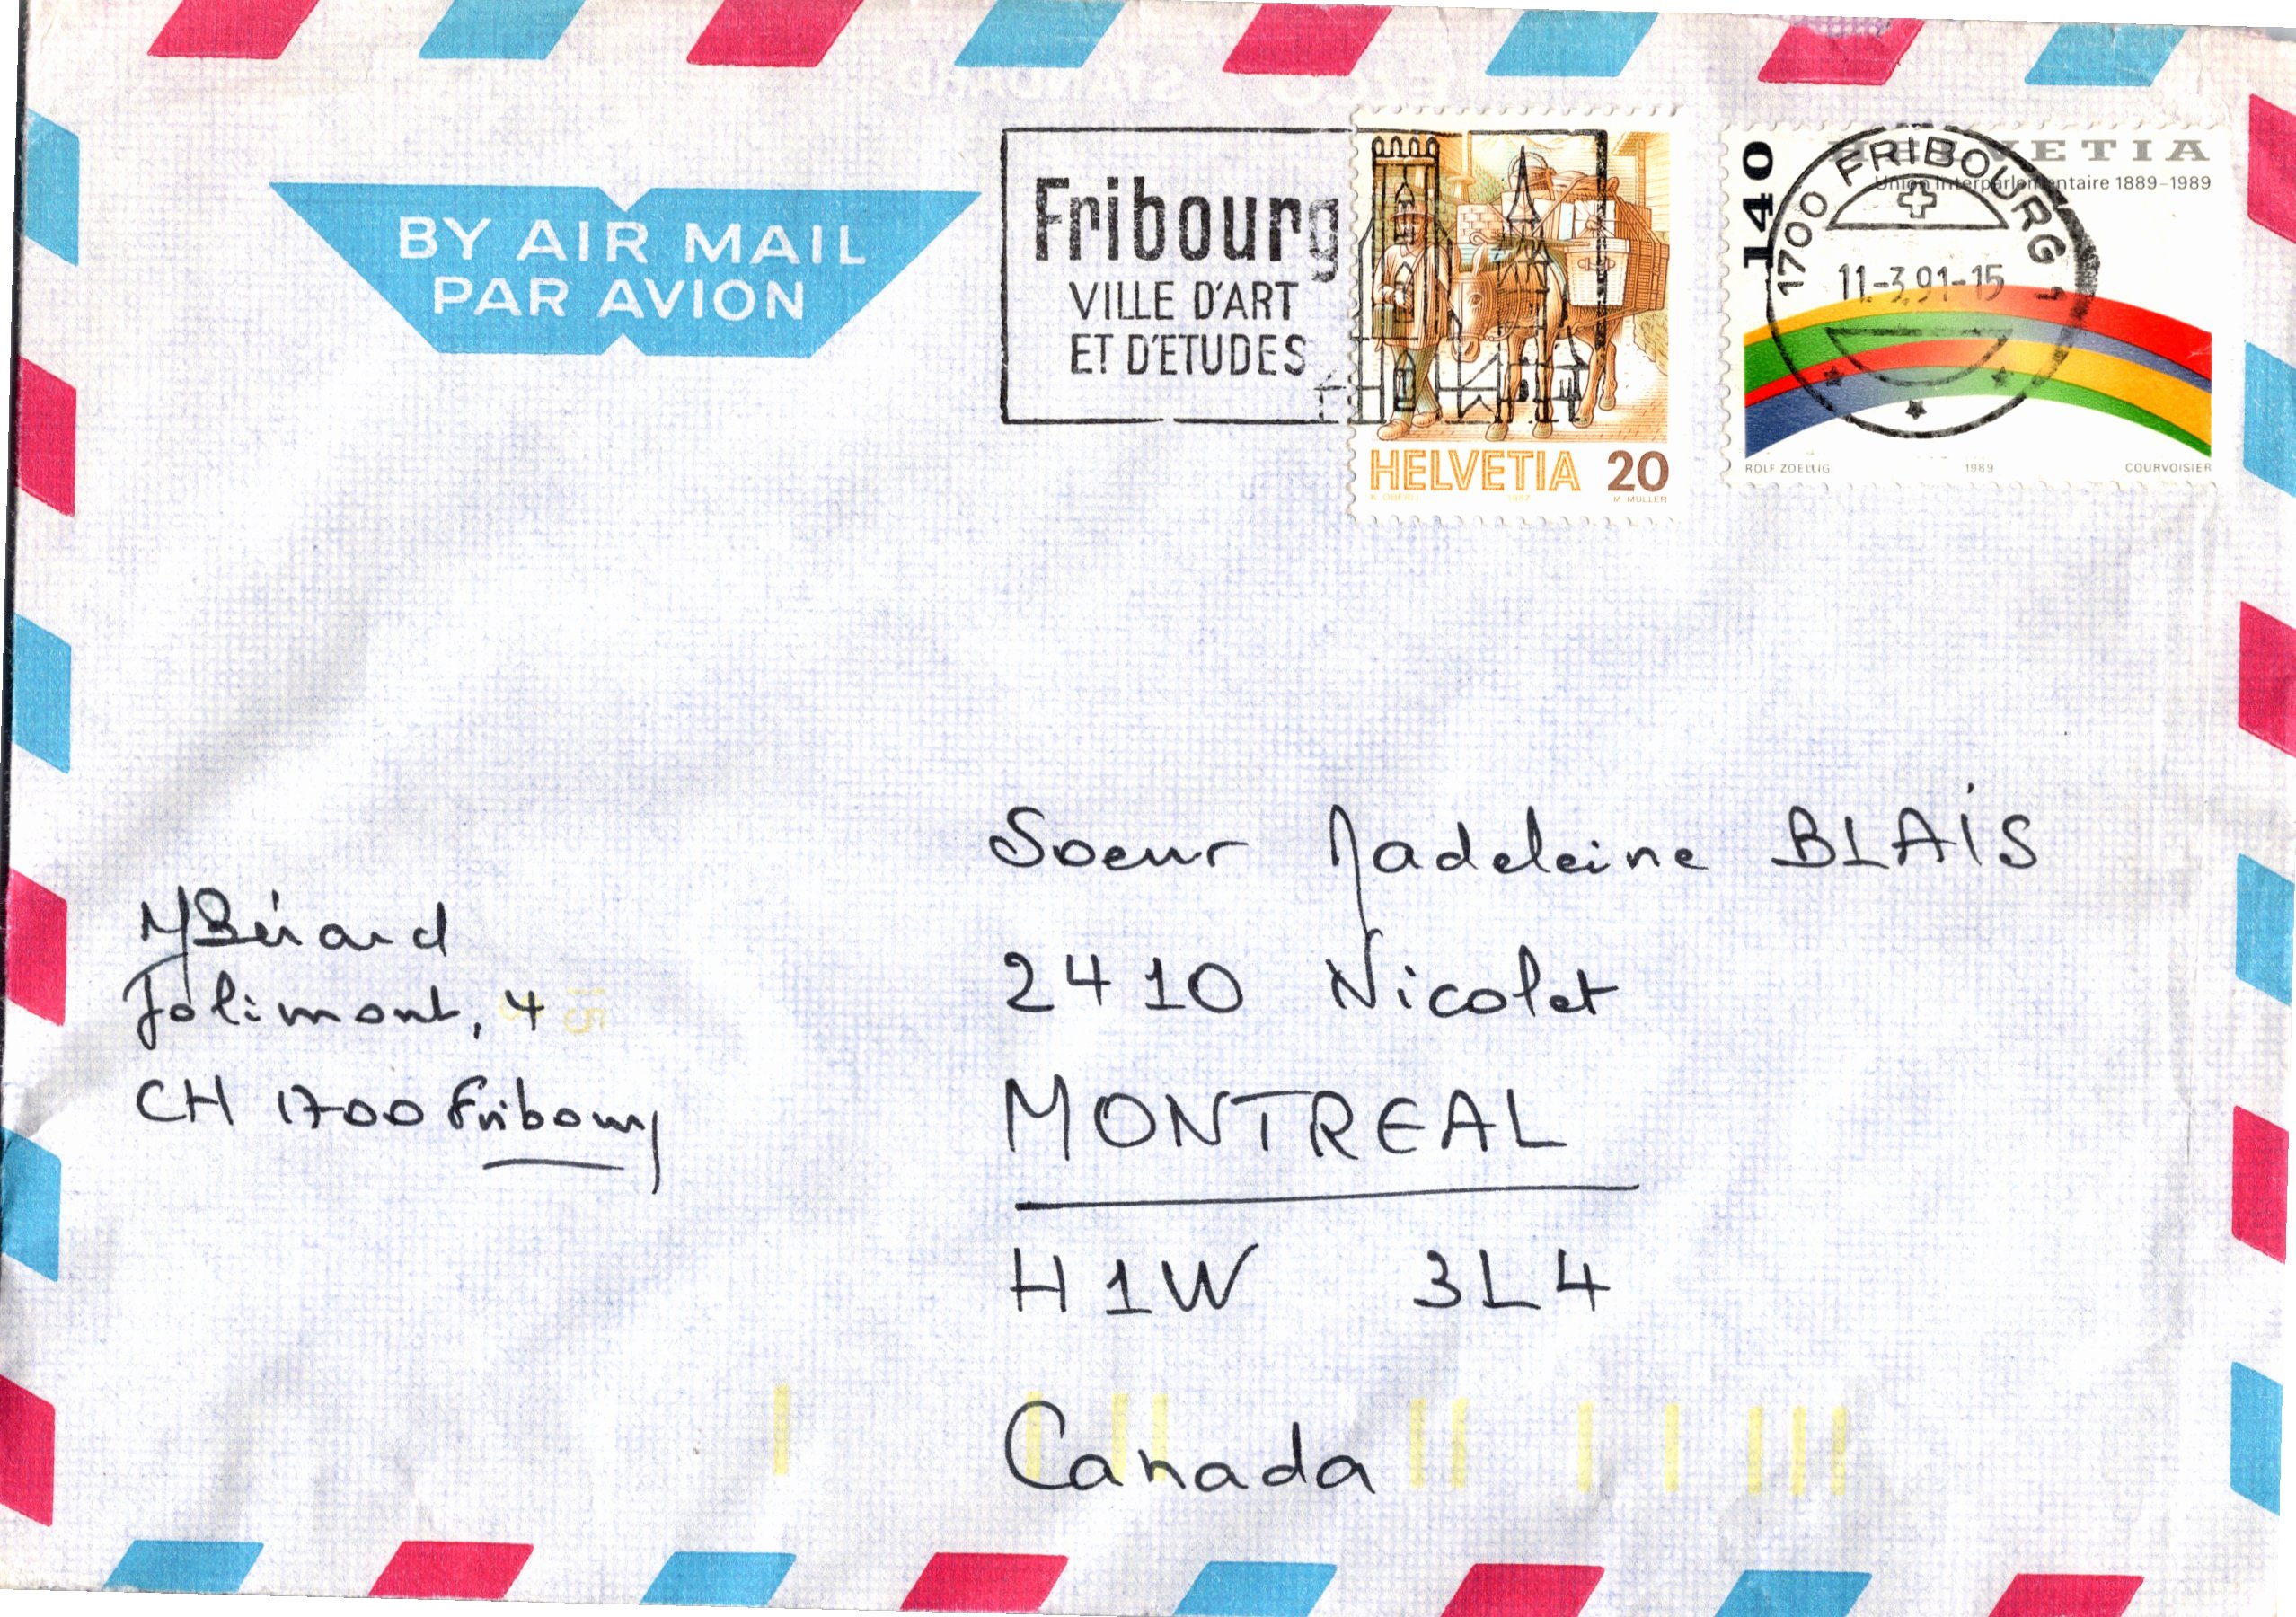 BY AIR MAIL
PAR AVION
Fribourg
VILLE D'ART
ET D'ETUDES
HELVETIA 20
1987
M. MÜLLER
140
HELVETIA
Union interparlementaire 1889–1989
1700 FRIBOURG 1
11.-3.91-15
ROLF ZOELLIG. 1989 COURVOISIER
Soeur Madeleine BLAIS
2410 Nicolet
MONTREAL
H1W 3L4
Canada
MBérard
Jolimont, 4
CH 1700 Fribourg